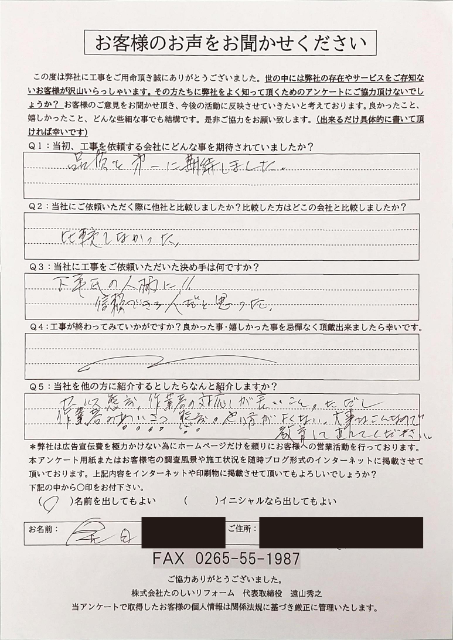 お客様のお声をお聞かせください
この度は弊社に工事をご用命頂き誠にありがとうございました。世の中には弊社の存在やサービスをご存知な
いお客様が沢山いらっしゃいます。その方たちに弊社をよく知って頂くためのアンケートにご協力頂けないで
しょうか？ お客様のご意見をお聞かせ頂き、今後の活動に反映させていきたいと考えております。良かったこと、
嬉しかったこと、どんな些細な事でも結構です。是非ご協力をお願い致します。（出来るだけ具体的に書いて頂
ければ幸いです）
Q1：当初、工事を依頼する会社にどんな事を期待されていましたか？
品質を第一に期待しました。
Q2：当社にご依頼いただく際に他社と比較しましたか？比較した方はどこの会社と比較しましたか？
比較しなかった。
Q3：当社に工事をご依頼いただいた決め手は何ですか？
氏の人柄に!!
信頼できる人だと思った。
Q4：工事が終わってみていかがですか？良かった事・嬉しかった事を忌憚なく頂戴出来ましたら幸いです。
Q5：当社を他の方に紹介するとしたらなんと紹介しますか？
作業者の対応が良いこと。ただし
作業者のあいさつ
教育して
＊弊社は広告宣伝費を極力かけない為にホームページだけを頼りにお客様への営業活動を行っております。
本アンケート用紙またはお客様宅の調査風景や施工状況を随時ブログ形式のインターネットに掲載させて
頂いております。上記内容をインターネットや印刷物に掲載させて頂いてもよろしいでしょうか？
下記の中から○印をお付下さい。
（○）名前を出してもよい （ ）イニシャルなら出してもよい
お名前： ご住所：
FAX 0265-55-1987
ご協力ありがとうございました。
株式会社たのしいリフォーム 代表取締役 遠山秀之
当アンケートで取得したお客様の個人情報は関係法規に基づき厳正に管理いたします。